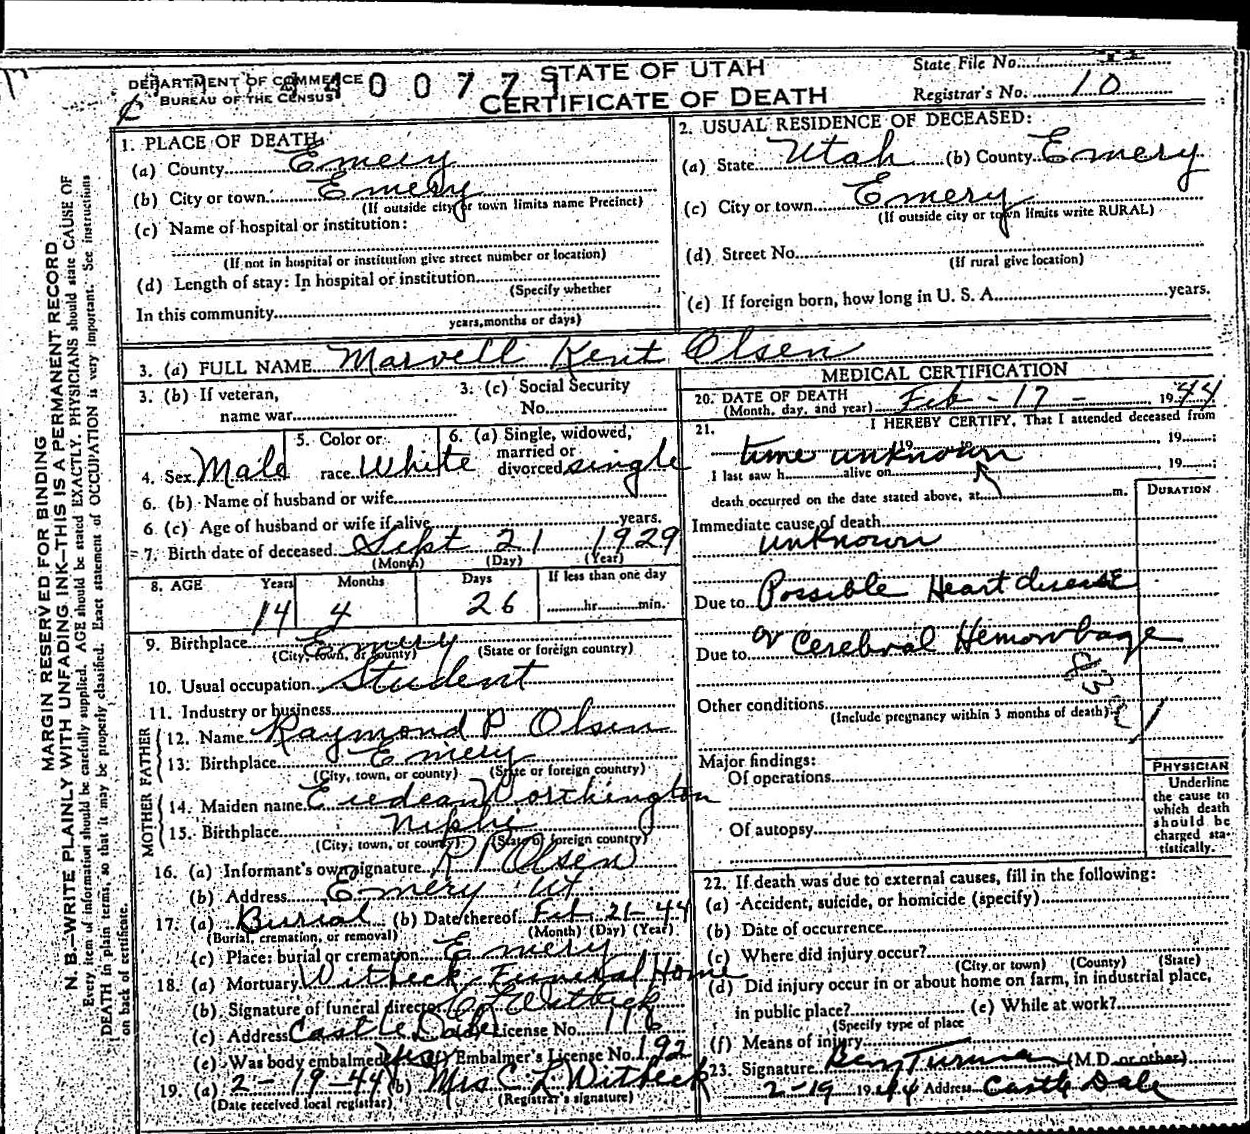 DEPARTMENT OF COMMERCE
BUREAU OF THE CENSUS
STATE OF UTAH
CERTIFICATE OF DEATH
State File No.
Registrar's No. 10
MARGIN RESERVED FOR BINDING
N. B.—WRITE PLAINLY WITH UNFADING INK—THIS IS A PERMANENT RECORD
Every item of information should be carefully supplied. AGE should be stated EXACTLY. PHYSICIANS should state CAUSE OF
DEATH in plain terms, so that it may be properly classified. Exact statement of OCCUPATION is very important. See instructions
on back of certificate.
1. PLACE OF DEATH
(a) County Emery
(b) City or town Emery
(If outside city or town limits name Precinct)
(c) Name of hospital or institution:
(If not in hospital or institution give street number or location)
(d) Length of stay: In hospital or institution
(Specify whether
In this community
years, months or days)
2. USUAL RESIDENCE OF DECEASED:
(a) State Utah (b) County Emery
(c) City or town Emery
(If outside city or town limits write RURAL)
(d) Street No.
(If rural give location)
(e) If foreign born, how long in U. S. A. years.
3. (a) FULL NAME Marvell Kent Olsen
3. (b) If veteran,
name war
3. (c) Social Security
No.
4. Sex Male
5. Color or
race White
6. (a) Single, widowed,
married or
divorced single
6. (b) Name of husband or wife
6. (c) Age of husband or wife if alive years.
7. Birth date of deceased Sept 21 1929
(Month) (Day) (Year)
8. AGE Years Months Days If less than one day
14 4 26 hr. min.
9. Birthplace Emery
(City, town, or county) (State or foreign country)
10. Usual occupation Student
11. Industry or business
FATHER
12. Name Raymond P Olsen
13. Birthplace Emery
(City, town, or county) (State or foreign country)
MOTHER
14. Maiden name Worthington
15. Birthplace Nephi
(City, town, or county) (State or foreign country)
16. (a) Informant's own signature R P Olsen
(b) Address Emery Ut.
17. (a) Burial (b) Date thereof Feb 21-44
(Burial, cremation, or removal) (Month) (Day) (Year)
(c) Place: burial or cremation Emery
18. (a) Mortuary Witbeck Funeral Home
(b) Signature of funeral director C L Witbeck
(c) Address Castle Dale License No. 116
(e) Was body embalmed yes Embalmer's License No. 192
19. (a) 2-19-44 (b) Mrs C L Witbeck
(Date received local registrar) (Registrar's signature)
MEDICAL CERTIFICATION
20. DATE OF DEATH
(Month, day, and year) Feb - 17 - 1944
21. I HEREBY CERTIFY, That I attended deceased from
time unknown 19 to , 19 ;
I last saw h alive on , 19 ;
death occurred on the date stated above, at m.
DURATION
Immediate cause of death
unknown
Due to Possible Heart disease
Due to or Cerebral Hemorrhage
Other conditions
(Include pregnancy within 3 months of death)
Major findings:
Of operations
Of autopsy
PHYSICIAN
Underline
the cause to
which death
should be
charged sta-
tistically.
22. If death was due to external causes, fill in the following:
(a) Accident, suicide, or homicide (specify)
(b) Date of occurrence
(c) Where did injury occur?
(City or town) (County) (State)
(d) Did injury occur in or about home on farm, in industrial place,
in public place? (e) While at work?
(Specify type of place
(f) Means of injury
23. Signature (M.D. or other)
2-19 1944 Address Castle Dale